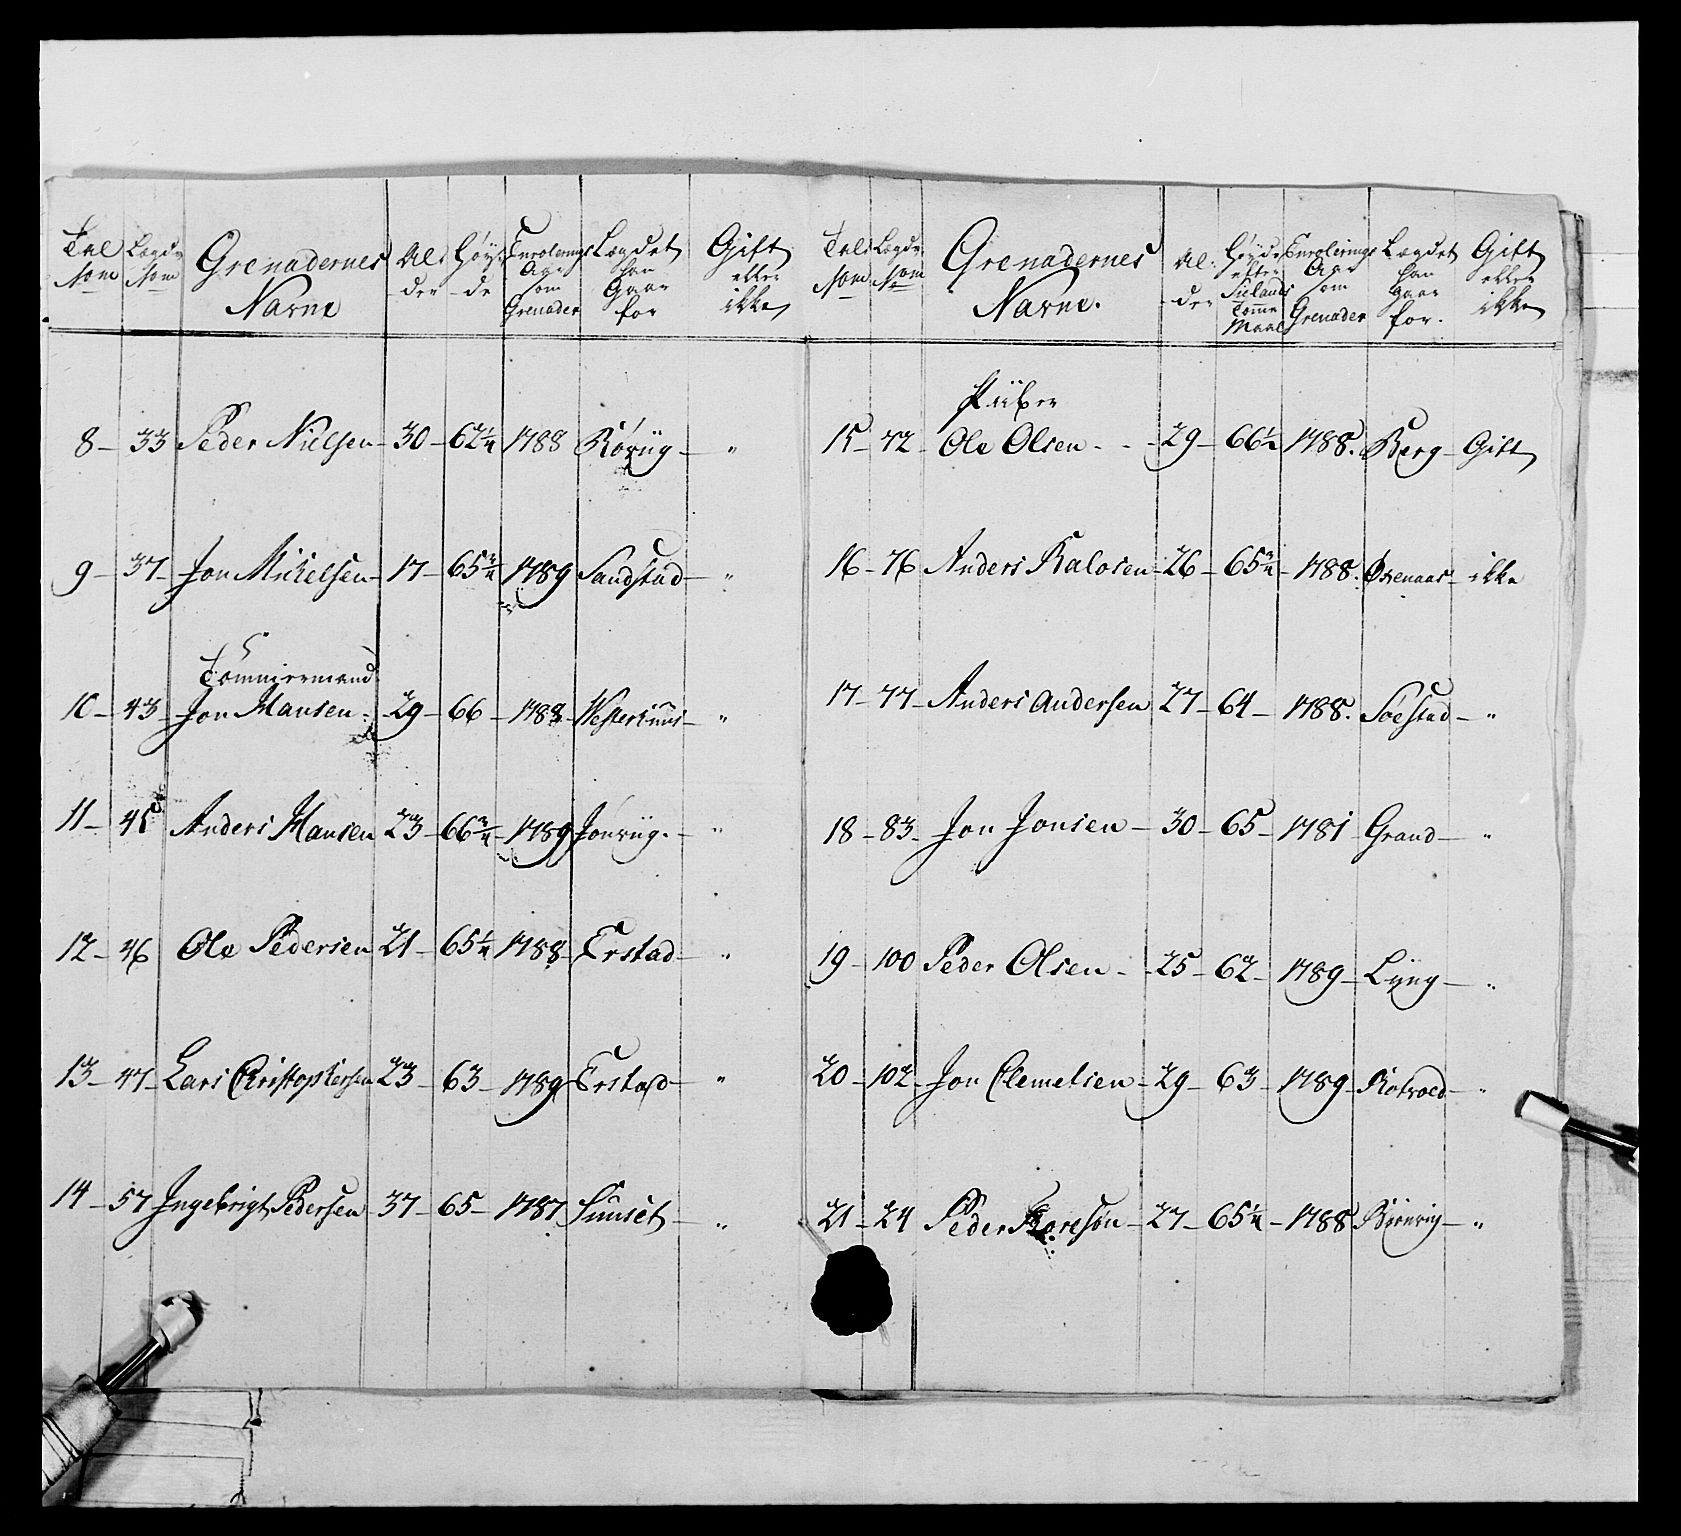 Grenadernes
Navne
Al-
der
Høy-
de
Enrolerings
Aar
som
Grenader
Lægdet
han
Gaar
for
Gift
eller
ikke
8 - 33 Peder Nielsen - 30 - 62 1/4 1788 - "
9 - 37 - Jon Mikelsen - 17 - 65 3/4 1789 Sandstad - "
Tømmermand
10 - 43 - Jon Hansen - 29 - 66 - 1788 - "
11 - 45 Anders Hansen 23 - 66 3/4 - 1789 - "
12 - 46 Ole Pedersen 21 - 65 1/4 1788 - Erstad - "
13 - 47 - Lars Christophersen 23 - 63 - 1789 Erstad - "
14 - 57 Ingebrigt Pedersen 37 - 65 - 1787 Sunset - "
Grenadernes
Navne.
Al-
der
Høyde
efter
Sielands
Tomme
Maal
Enrolerings
Aar
som
Grenader
Lægdet
han
Gaar
for.
Gift
eller
ikke
Piiber
15 - 72 - Ole Olsen - 29 - 66 1/2 1788. Berg - Gift
16 - 76 Anders - 26 - 65 3/4 - 1788. - ikke
17 - 77 - Anders Andersen 27 - 64 - 1788. Søestad - "
18 - 83 - Jon Jonsen - 30 - 65 - 1781 Grand - "
19 - 100 Peder Olsen - 25 - 62 - 1789 - Lyng - "
20 - 102 - Jon Clemetsen - 29 - 63 - 1789 - Rotvold - "
21 - 24 Peder - 27 - 65 1/4 - 1788 - "